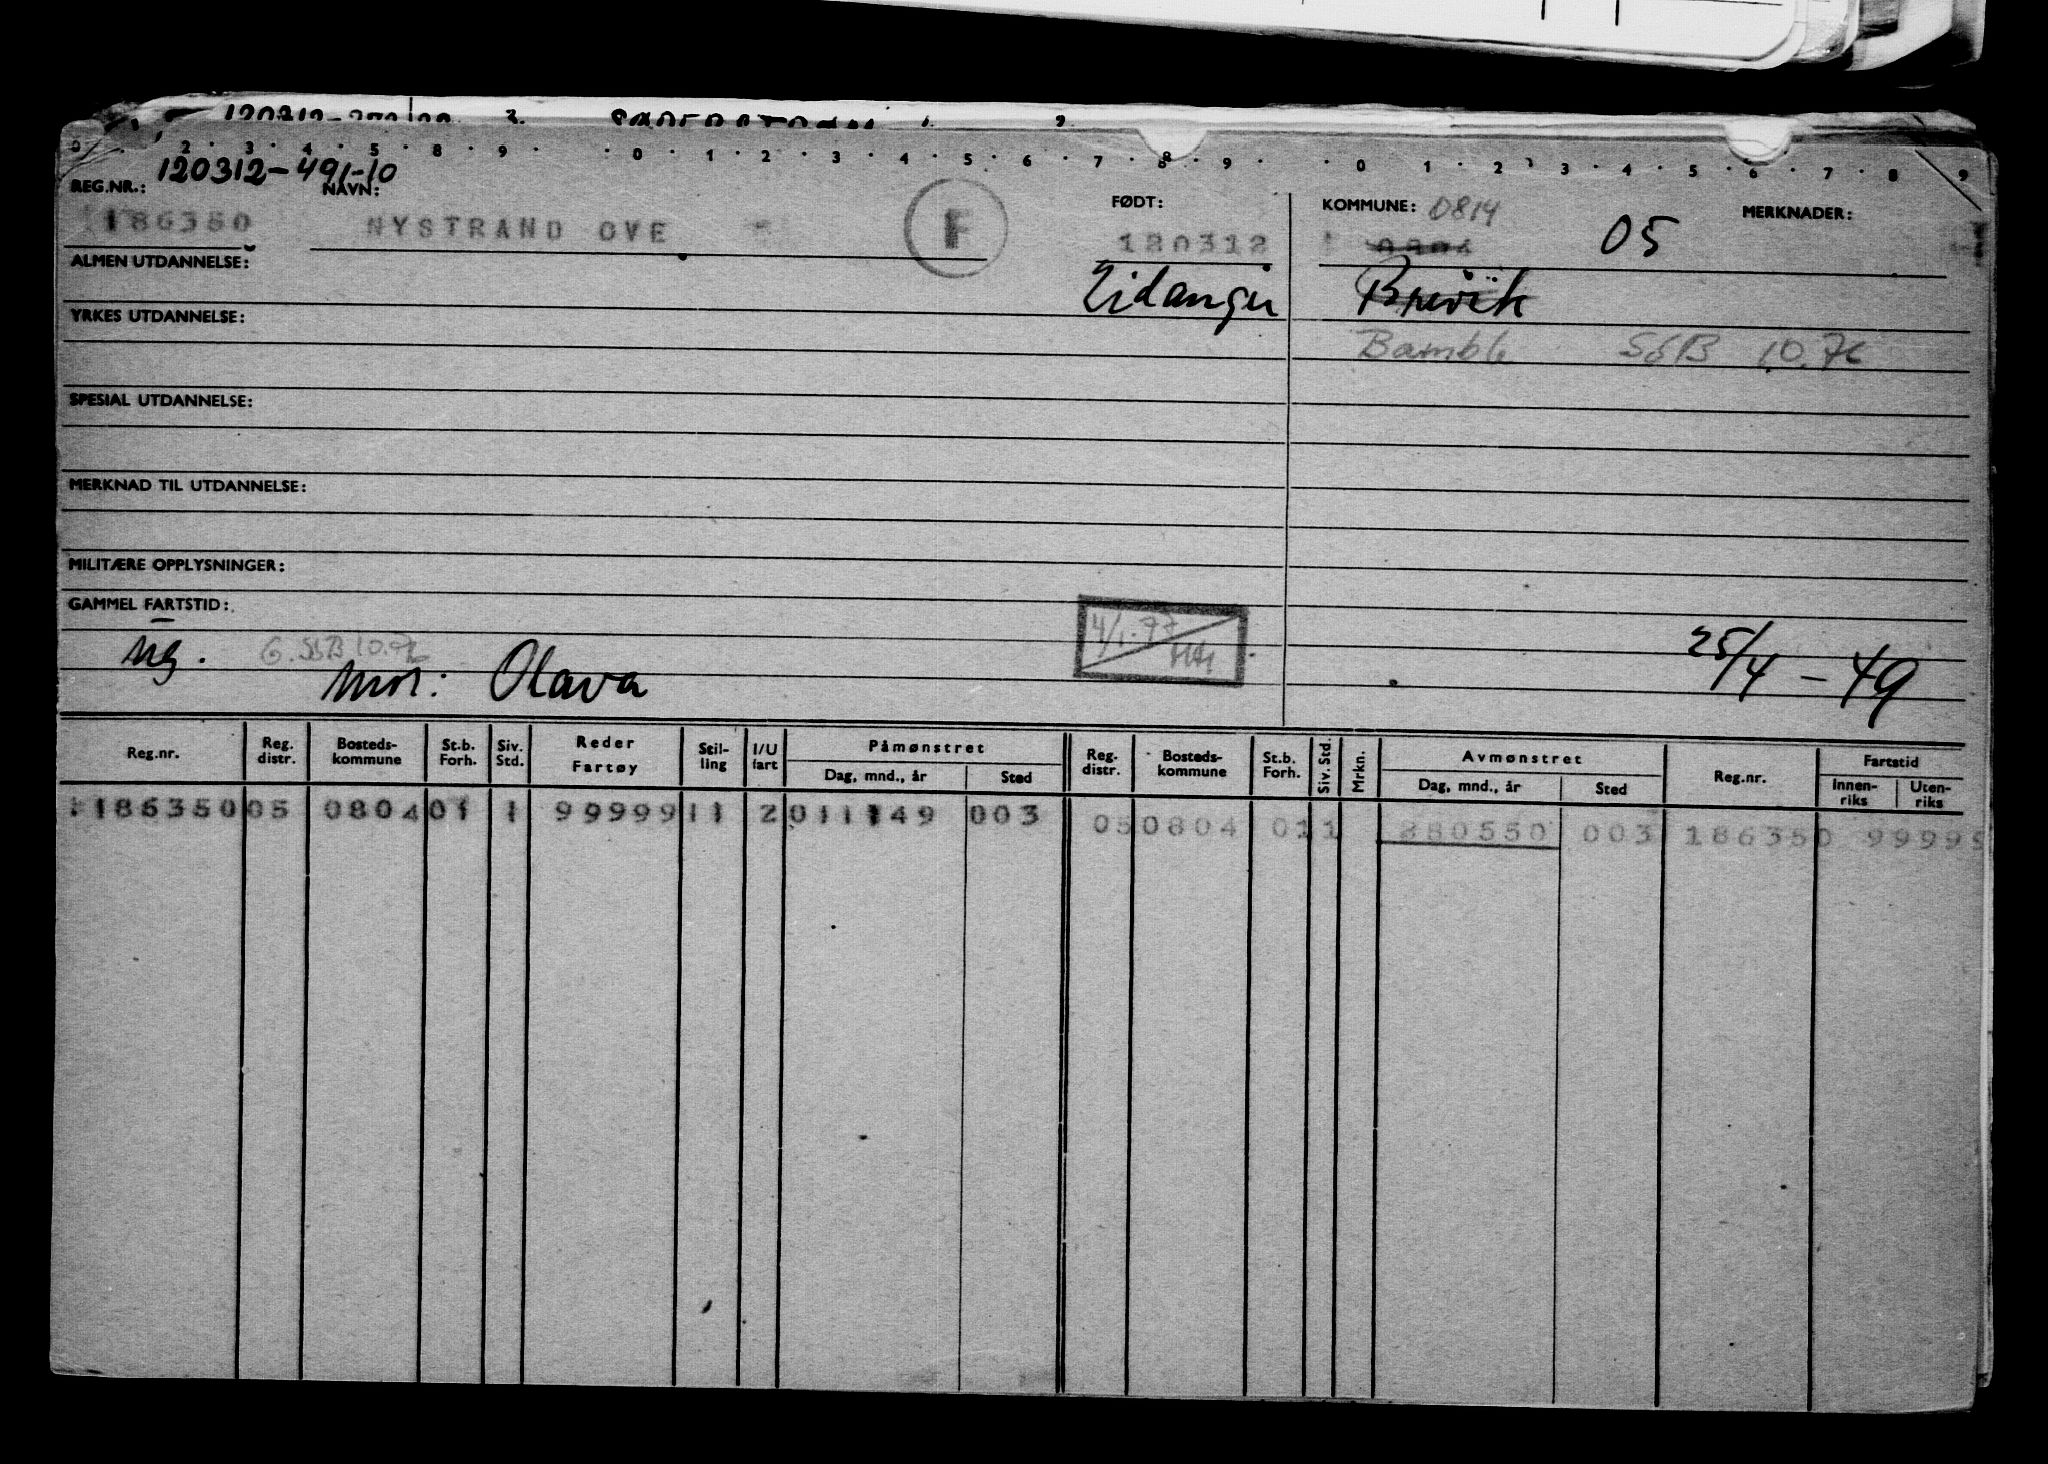 0 . . 2 . 3 . 4 . 5 . 8 . 9 . . 0 . 1 . 2 . 3 . 4 . 5 . 6 . 7 . 8 . 9 . . 0 . 1 . 2 . 3 . 4 . 5 . 6 . 7 . 8 . 9
120312-491-10
REG.NR.: NAVN: FØDT: KOMMUNE: 0814 MERKNADER:
186350 NYSTRAND OVE F 120312 0804 05
ALMEN UTDANNELSE: Eidanger Brevik
YRKES UTDANNELSE:
Bamble SSB 10.76
SPESIAL UTDANNELSE:
MERKNAD TIL UTDANNELSE:
MILITÆRE OPPLYSNINGER:
GAMMEL FARTSTID:
4/1-77
25/4-49
mor: Olava
Reg.nr. Reg. distr. Bosteds-kommune St.b. Forh. Siv. Std. Reder Fartøy Stil-ling I/U fart Påmønstret Dag, mnd., år Sted Reg. distr. Bosteds-kommune St.b. Forh. Siv. Std. Mrkn. Avmønstret Dag, mnd., år Sted Reg.nr. Fartstid Innen-riks Uten-riks
186350 05 0804 01 1 99999 11 2 011149 003 05 0804 01 1 280550 003 186350 99999